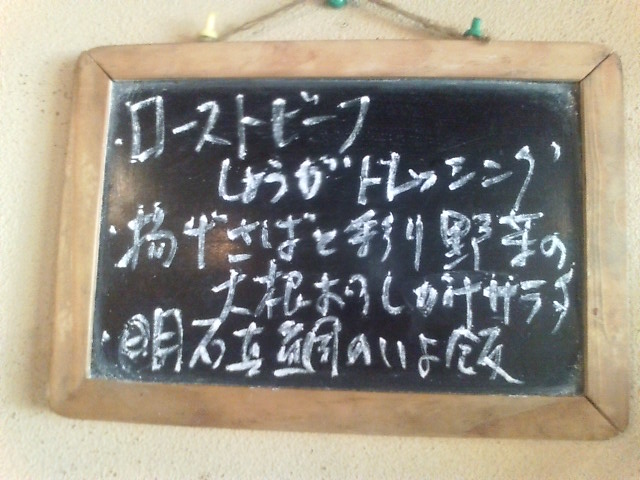 ・ローストビーフ
しょうがドレッシング
・揚げさばと彩り野菜の
大根おろしがけサラダ
・明石真鯛のいよ飯